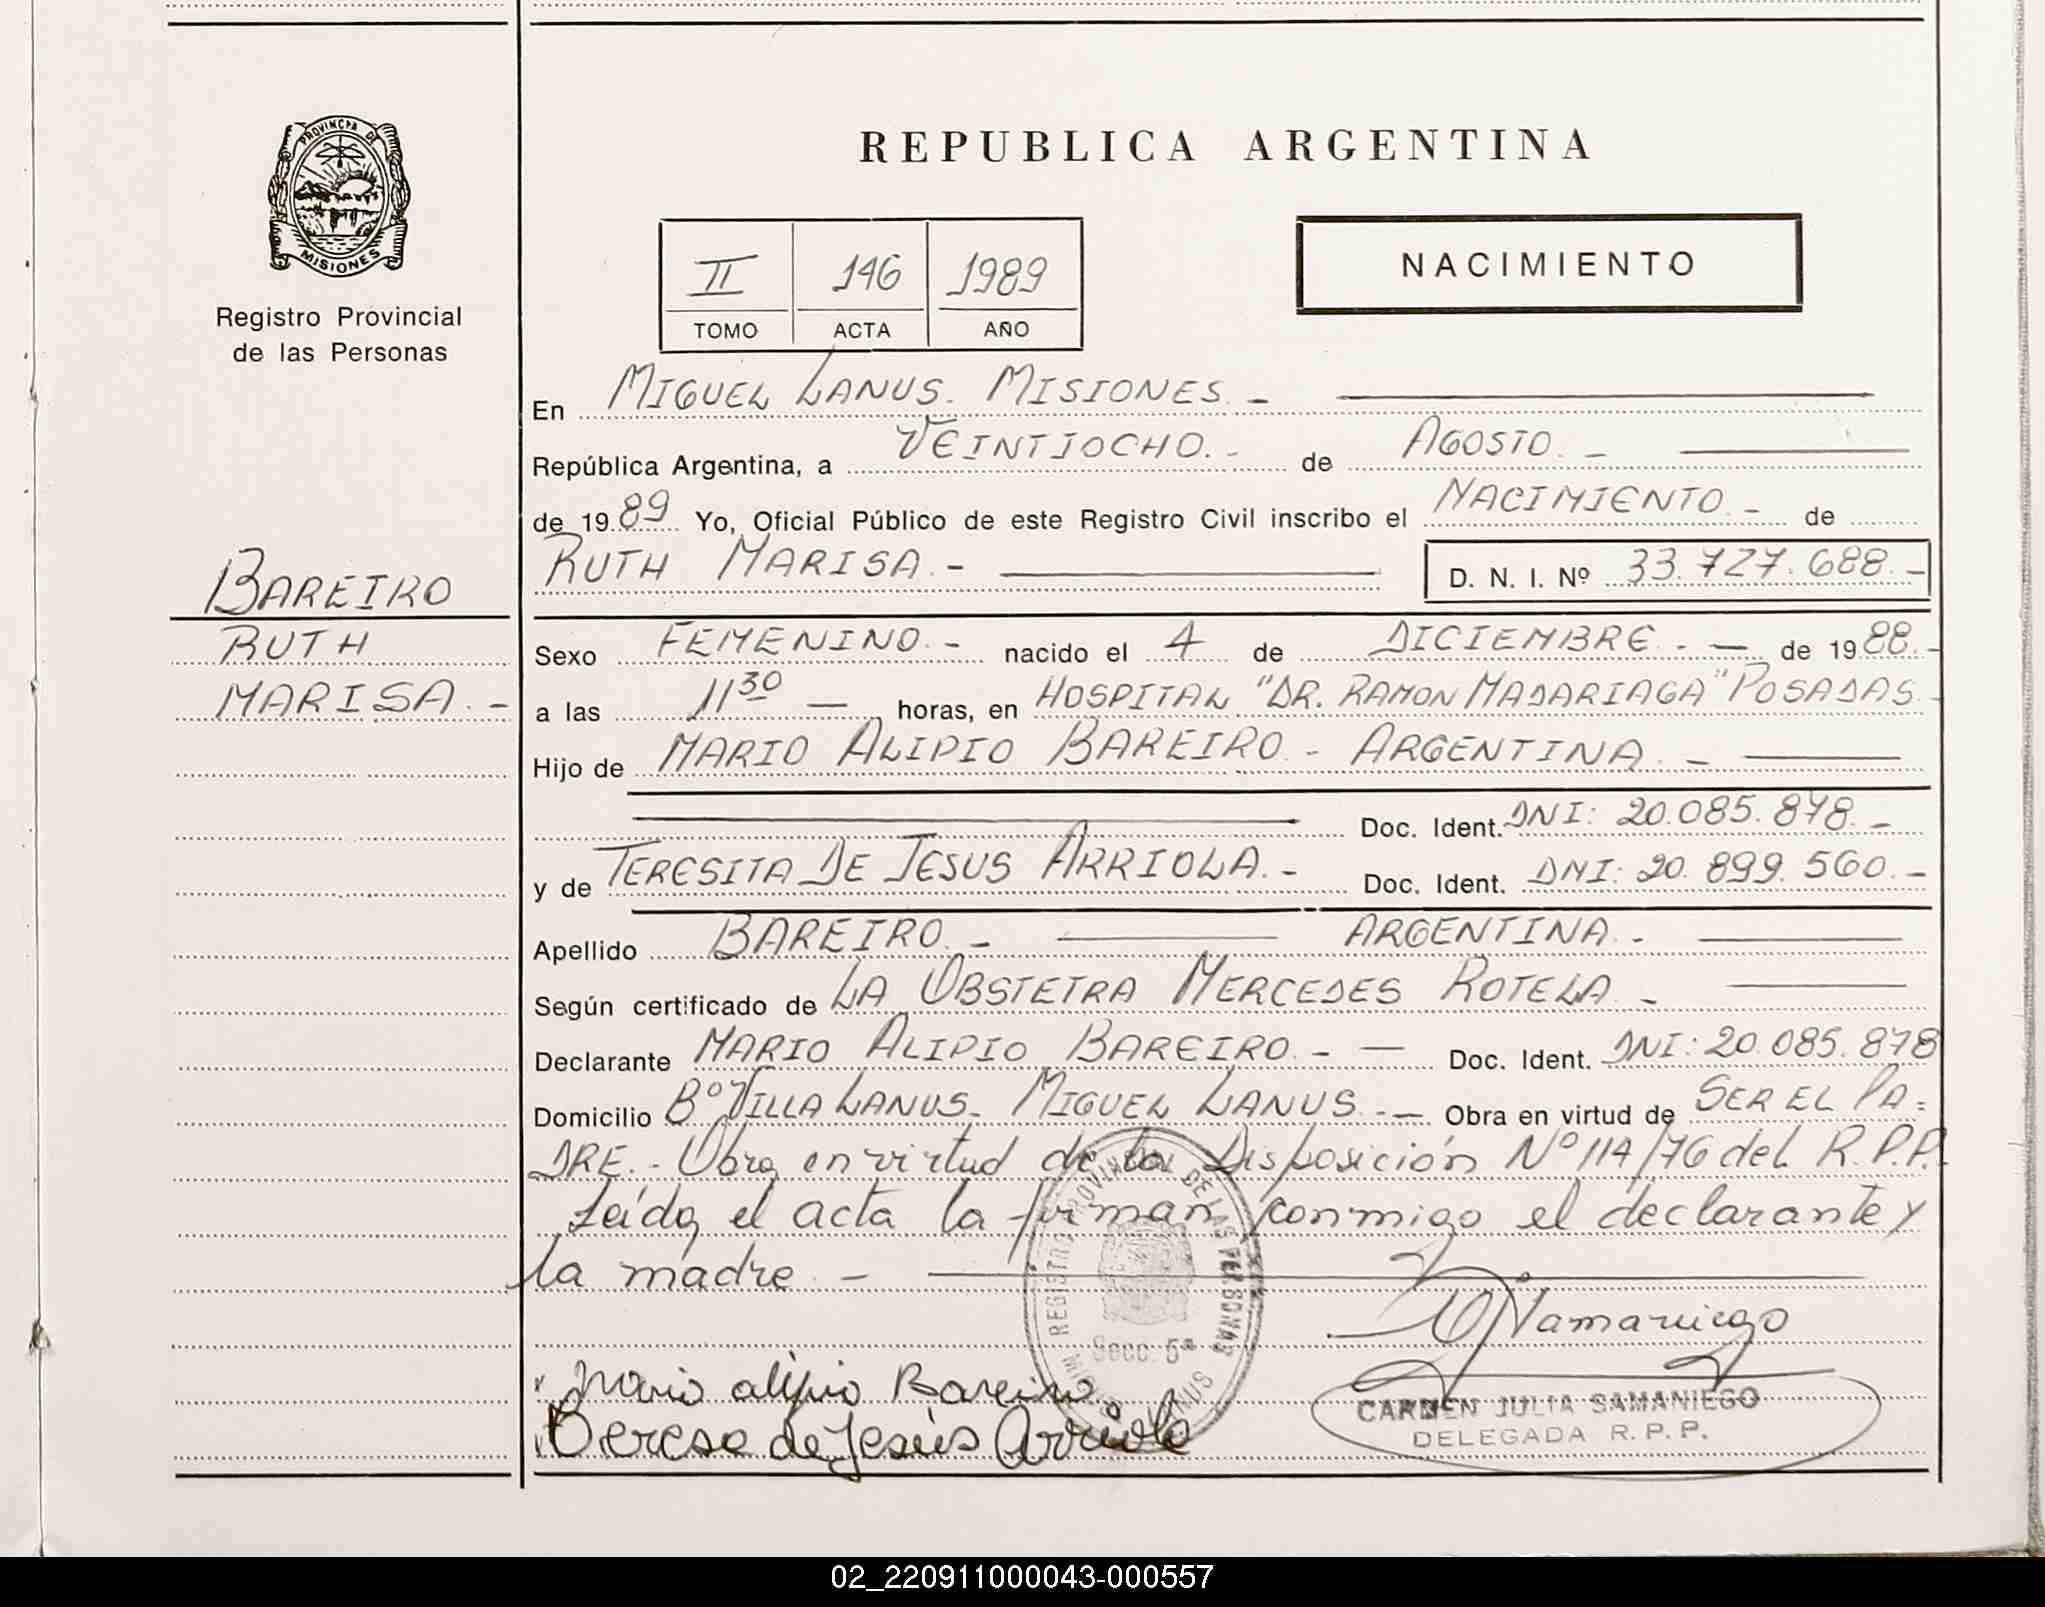 PROVINCIA DE
MISIONES
Registro Provincial
de las Personas
REPUBLICA ARGENTINA
II 146 1989
TOMO ACTA AÑO
NACIMIENTO
En MIGUEL LANUS. MISIONES. -
República Argentina, a VEINTIOCHO. - de AGOSTO. -
de 1989 Yo, Oficial Público de este Registro Civil inscribo el NACIMIENTO. - de
RUTH MARISA. - D. N. I. Nº 33.727.688. -
BAREIRO
RUTH
MARISA. -
Sexo FEMENINO. - nacido el 4 de DICIEMBRE. - de 1988. -
a las 11 30 — horas, en HOSPITAL "DR. RAMON MADARIAGA" POSADAS. -
Hijo de MARIO ALIPIO BAREIRO - ARGENTINA. -
Doc. Ident. DNI: 20.085.878. -
y de TERESITA DE JESUS ARRIOLA. - Doc. Ident. DNI: 20.899.560. -
Apellido BAREIRO. - ARGENTINA. -
Según certificado de LA OBSTETRA MERCEDES ROTELA. -
Declarante MARIO ALIPIO BAREIRO. - — Doc. Ident. DNI: 20.085.878
Domicilio Bº VILLA LANUS. MIGUEL LANUS. - — Obra en virtud de SER EL PA=
DRE. - Obra en virtud de la Disposición Nº 114/76 del R.P.P.
Leída el acta la firman conmigo el declarante y
la madre. -
REGISTRO PROVINCIAL DE LAS PERSONAS
Secc. 5ª
MIGUEL LANUS
Mario alipio Bareiro
Teresa de Jesús Arriola
Samaniego
CARMEN JULIA SAMANIEGO
DELEGADA R. P. P.
02_220911000043-000557